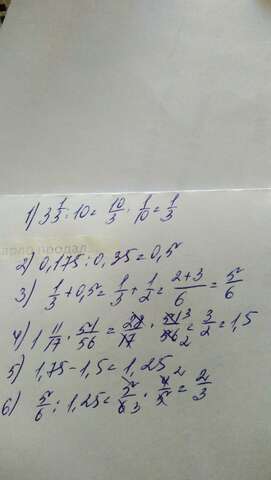 1) 3 1/3 : 10 = 10/3 · 1/10 = 1/3
продал
2) 0,175 : 0,35 = 0,5
3) 1/3 + 0,5 = 1/3 + 1/2 = 2+3/6 = 5/6
4) 1 11/17 · 51/56 = 28/17 · 51 3/56 2 = 3/2 = 1,5
5) 1,75 - 1,5 = 1,25
6) 5/6 : 1,25 = 5/6 3 · 4 2/5 = 2/3